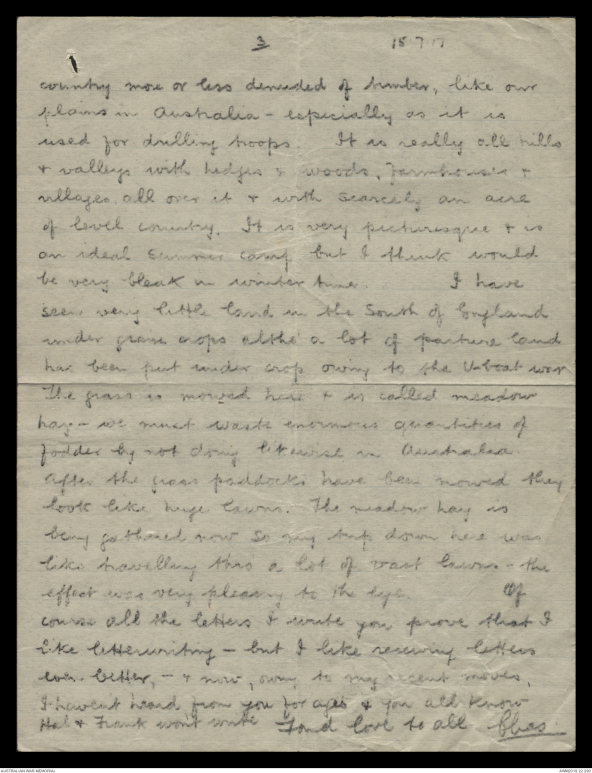 3 15.7.17
country more or less denuded of timber, like our
plains in Australia - especially as it is
used for drilling troops. It is really all hills
& valleys with hedges & woods, farmhouses &
villages all over it & with scarcely an acre
of level country. It is very picturesque & is
an ideal summer camp but I think would
be very bleak in winter time. I have
seen very little land in the South of England
under grain crops altho' a lot of pasture land
has been put under crop owing to the U-boat war
The grass is mowed here & is called meadow
hay - we must waste enormous quantities of
fodder by not doing likewise in Australia.
After the grass paddocks have been mowed they
look like huge lawns. The meadow hay is
being gathered now so my trip down here was
like travelling thro' a lot of vast lawns - the
effect was very pleasing to the eye. Of
course all the letters I write you prove that I
like letterwriting - but I like receiving letters
even better, - & now, owing to my recent moves,
I havent heard from you for ages & you all know
Hal & Frank won't write Fond love to all Chas.
AUSTRALIAN WAR MEMORIAL